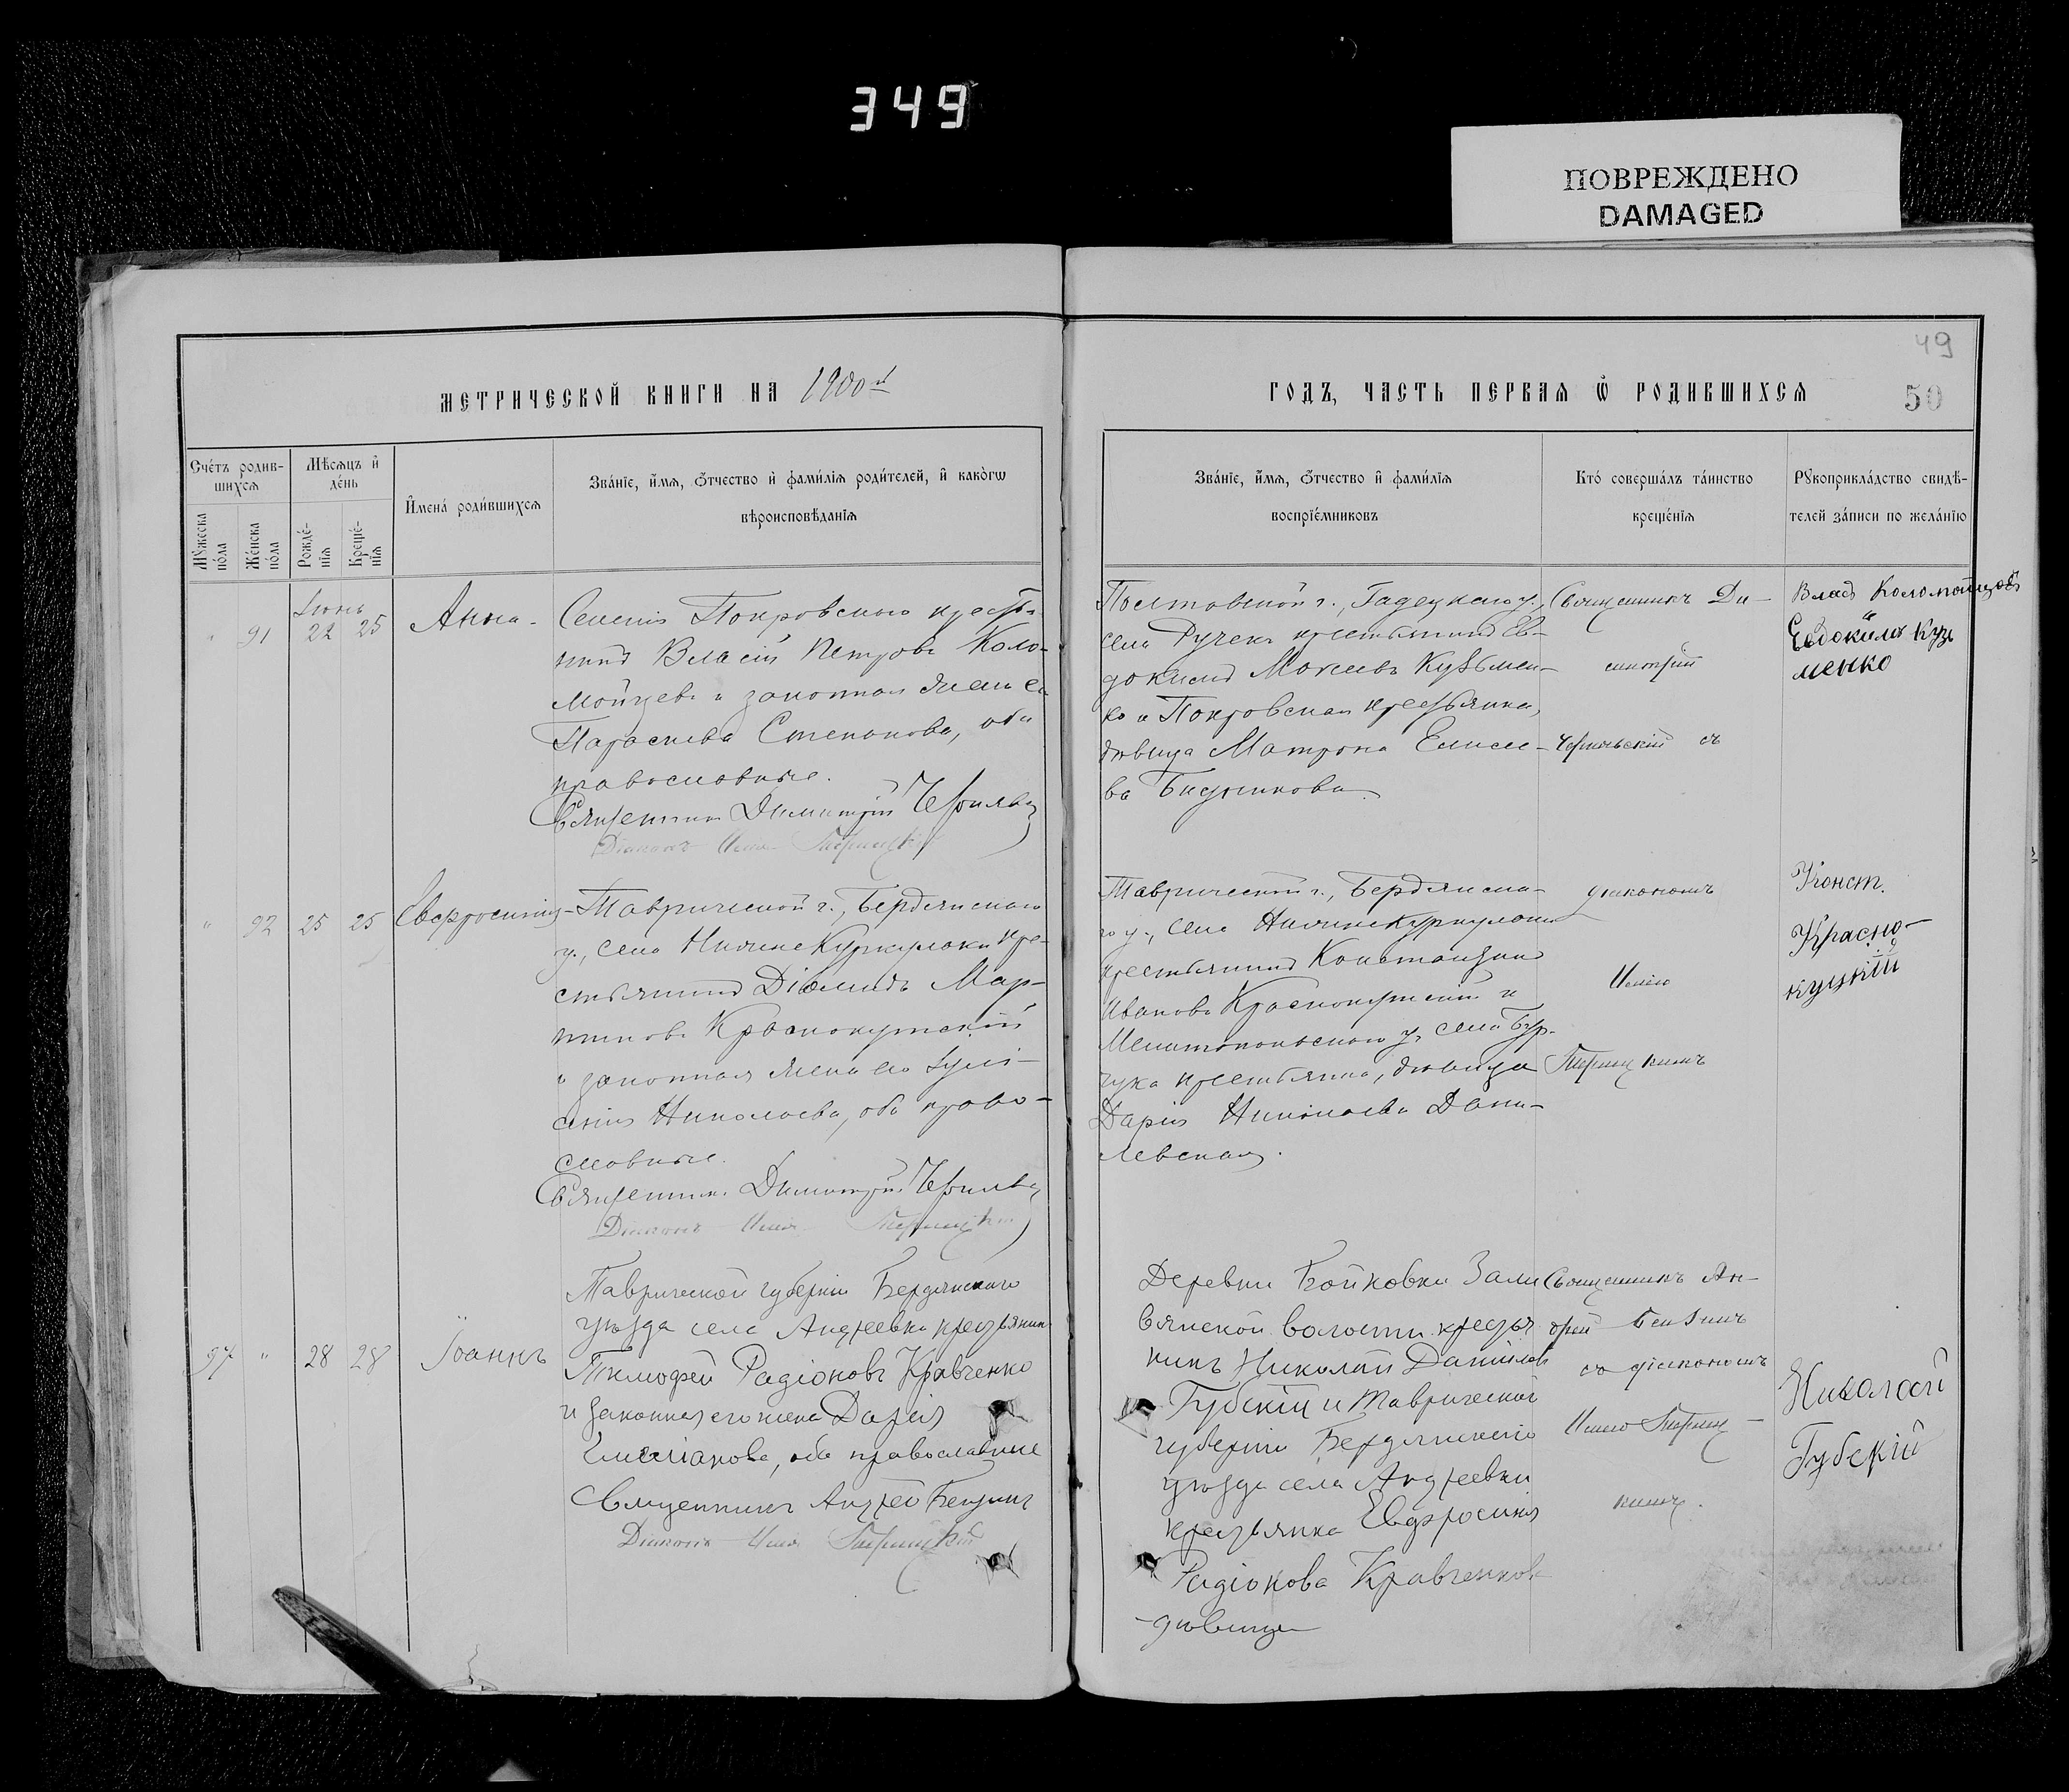 349
ПОВРЕЖДЕНО
DAMAGED
49
50
МЕТРИЧЕСКОЙ КНИГИ НА 1900й
ГОДЪ, ЧАСТЬ ПЕРВАЯ Ѡ РОДИВШИХСЯ
Сче́тъ родив-
шихсѧ
Мꙋжеска по́ла
Же́нска по́ла
Мѣ́сѧцъ и҆ де́нь
Рожде́-нїѧ
Креще́-нїѧ
И҆мена́ роди́вшихсѧ
Зва́нїе, и҆́мѧ, ѻ҆́тчество и҆ фами́лїѧ роди́телей, и҆ како́гѡ
вѣроисповѣ́данїѧ
Зва́нїе, и҆́мѧ, ѻ҆́тчество и҆ фами́лїѧ
воспрїе́мниковъ
Кто́ соверша́лъ та́инство
креще́нїѧ
Рꙋкоприкла́дство свидѣ́-
телей за́писи по жела́нїю
Іюнь
" 91 22 25 Анна
Селенія Покровскаго кресть-
янинъ Власій Петровъ Коло-
мойцевъ и законная жена его
Параскева Степанова, оба
православные.
Священникъ Димитрій
Діаконъ Илія
Полтавской г., Гадецкаго у.,
села Ручекъ крестьянинъ Ев-
докимъ Мокіевъ Кузьмен-
ко и Покровская крестьянка,
дѣвица Матрона Елисее-
ва
Священникъ Ди-
митрій
съ
Влас Коломойцовъ
Евдокимъ Кузь
менко
" 92 25 25 Евфросинія
Таврической г., Бердянскаго
у., села Нижне Куркулаки кре-
стьянинъ Діомидъ Мар-
тиновъ Краснокутскій
и законная жена его Іулі-
анія Николаева, оба право-
славные.
Священникъ Димитрій
Діаконъ Илія
Таврической г., Бердянска-
го у., села Нижнекуркулаки
крестьянинъ Константинъ
Ивановъ Краснокутскій и
Мелитопольскаго у. села Бур-
чука крестьянка, дѣвица
Дарія Николаева Дани-
левская.
діакономъ
Иліею
Конст.
Красно-
куцкій
97 " 28 28 Іоаннъ
Таврической губерніи Бердянскаго
уѣзда села Андреевки крестьянинъ
Тимофей Радіоновъ Кравченко
и законная его жена Дарія
Емеліанова, оба православные
Священникъ Андрей Бензинъ
Діаконъ Илія
Деревни Бойковки
волости крестья
нинъ Николай Даниловъ
Губскій и Таврической
губерніи Бердянскаго
уѣзда села Андреевки
крестьянка Евфросинія
Радіонова Кравченкова
дѣвица
Священникъ Ан-
дрей Бензинъ
съ діакономъ
Иліею
кимъ.
Николай
Губскій